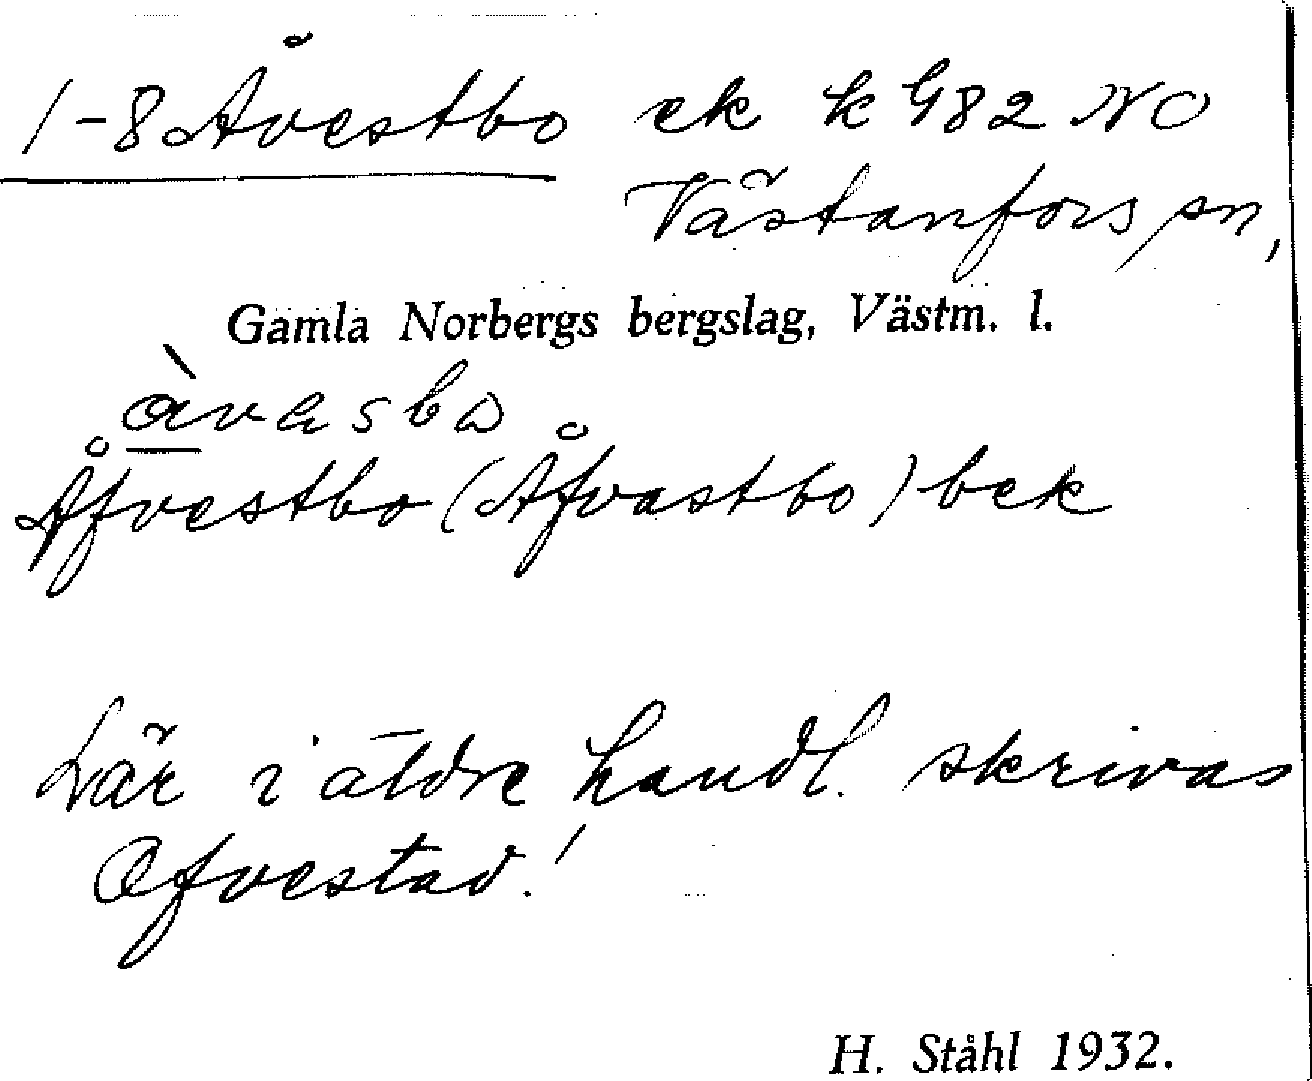 1-8 Åvestbo ek k G82 NO
Västanfors sn,
Gamla Norbergs bergslag, Västm. l.
àvasbo
Åfvestbo (Åfvastbo) bek
Lär i äldre handl. skrivas
Ofvestad!
H. Ståhl 1932.